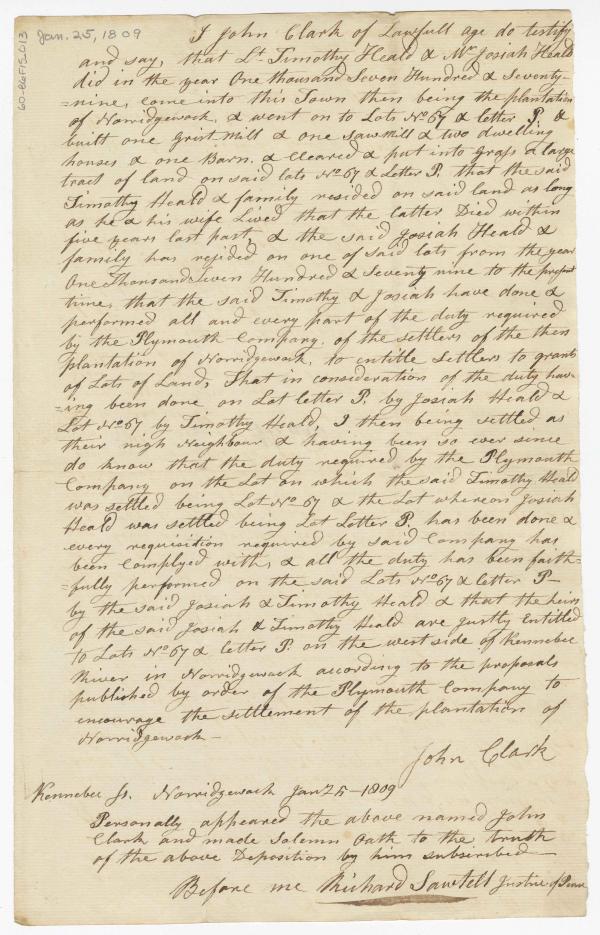 Jan. 25, 1809
60-86F15.D13
I John Clark of Lawfull age do testify
and say, that Lt. Timothy Heald & Mr Josiah Heald
did in the year One thousand Seven Hundred & Seventy-
=nine, come into this Town then being the plantation
of Norridgewock, & went on to Lots No 67 & letter P. &
built one Grist Mill & one Saw Mill & two dwelling
houses & one Barn. & Cleared & put into Grass a large
tract of land on said lots No 67 & Letter P. that the said
Timothy Heald & family resided on said land as long
as he & his wife Lived that the latter Died within
five years last past, & the said Josiah Heald &
family has resided on one of said lots from the year
One Thousand Seven Hundred & Seventy nine to the present
time, that the said Timothy & Josiah have done &
performed all and every part of the duty required
by the Plymouth Company. of the settlers of the then
plantation of Norridgewock, to entitle Settlers to grants
of Lots of Land, That in consideration of the duty hav-
=ing been done on Lot letter P. by Josiah Heald &
Lot No 67 by Timothy Heald, I then being settled as
their nigh Neighbour & having been so ever since
do know that the duty required by the Plymouth
Company on the Lot on which the said Timothy Heald
was settled being Lot No 67 & the Lot whereon Josiah
Heald was settled being Lot Letter P. has been done &
every requisition required by said Company has
been Complyed with, & all the duty has been faith-
=fully performed on the said Lots No 67 & letter P—
by the said Josiah & Timothy Heald & that the heirs
of the said Josiah & Timothy Heald are justly Entitled
to Lots No 67 & letter P. on the west side of Kennebec
River in Norridgewock according to the proposals
published by order of the Plymouth Company to
encourage the settlement of the plantation of
Norridgewock—
John Clark
Kennebec Ss. Norridgewock Jan 25 - 1809
Personally appeared the above named John
Clark and made Solemn Oath to the truth
of the above Deposition by him subscribed—
Before me Richard Sawtell Justice of Peace